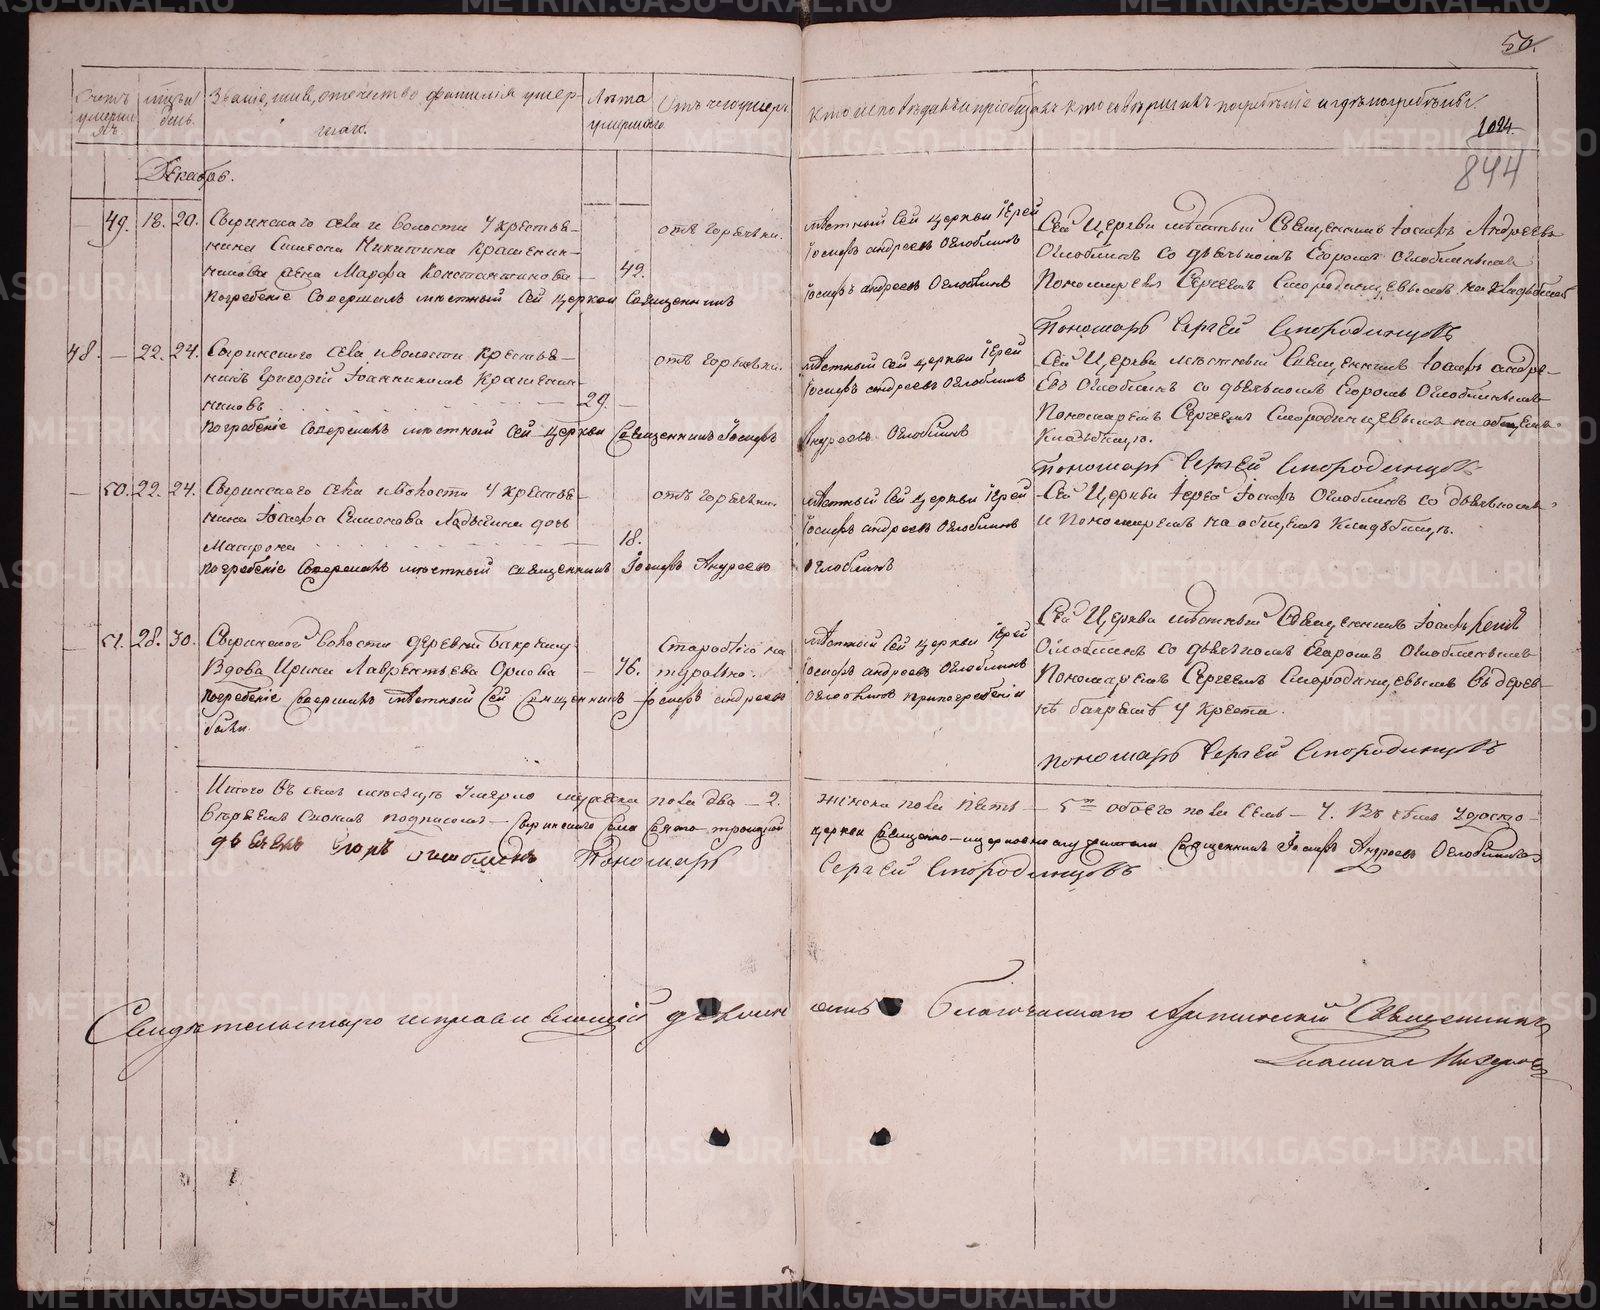 50.
Счетъ умерших
мѣсяцъ и день.
Званіе, имя, отчество, фамилія умер-
шаго.
Лѣта умершаго.
Отъ чего умеръ
Кто исповѣдывалъ и пріобщалъ
Кто совершилъ погребеніе и гдѣ погребены.
1024.
844
Декабрь.
49. 18. 20.
Сыринскаго села и волости крестья-
нина Симеона Никитина Крашенин-
никова жена Марфа Константинова
42.
Погребеніе совершалъ мѣстный сей церкви Священникъ
отъ горячки.
мѣстный сей церкви Іерей
Іосифъ Андреевъ Оглоблинъ
Іосифъ Андреевъ Оглоблинъ
Сей Церкви мѣстный Священникъ Іосифъ Андреевъ
Оглоблинъ со дьячкомъ Егоромъ Оглоблинымъ
Пономаремъ Сергеемъ Смородинцевымъ на кладбищѣ
Пономарь Сергей Смородинцовъ
48. — 22. 24.
Сыринскаго села и волости крестья-
нинъ Григорій Іоанникіевъ Крашенин-
никовъ
29.
Погребеніе совершалъ мѣстный сей церкви Священникъ Іосифъ
отъ горячки.
мѣстный сей церкви Іерей
Іосифъ Андреевъ Оглоблинъ
Андреевъ Оглоблинъ
Сей Церкви мѣстный Священникъ Іосифъ Андре-
евъ Оглоблинъ со дьячкомъ Егоромъ Оглоблинымъ
Пономаремъ Сергеемъ Смородинцевымъ на общемъ
Кладбищѣ.
Пономарь Сергей Смородинцовъ
— 50. 22. 24.
Сыринскаго села и волости крестья-
нина Іосифа Симонова дочь
Матрона
18.
погребеніе совершалъ мѣстный священникъ Іосифъ Андреевъ
отъ горячки.
мѣстный сей церкви Іерей
Іосифъ Андреевъ Оглоблинъ
Оглоблинъ
Сей Церкви Іерей Іосифъ Оглоблинъ со дьячкомъ
и Пономаремъ на общемъ Кладбищѣ.
— 51. 28. 30.
Сыринской волости деревни
Вдова Ирина Лаврентьева Орлова
76.
погребеніе совершалъ мѣстный сей Священникъ Іосифъ Андреевъ
были.
Старостію на
турально.
мѣстный сей церкви Іерей
Іосифъ Андреевъ Оглоблинъ
Оглоблинъ при погребеніи
Сей Церкви мѣстный Священникъ Іосифъ
Оглоблинъ со дьячкомъ Егоромъ Оглоблинымъ
Пономаремъ Сергеемъ Смородинцевымъ въ дерев-
нѣ у Креста.
Пономарь Сергей Смородинцовъ
Итого въ семъ мѣсяцѣ умерло мужеска пола два — 2. женска пола пять — 5. обоего пола семь — 7. Въ чемъ удосто-
вѣряемъ своимъ подписомъ Сыринскаго села Свято-троицкой церкви Священно-церковнослужители Священникъ Іосифъ Андреевъ Оглоблинъ
дьячекъ Егоръ Оглоблинъ Пономарь Сергей Смородинцовъ
Свидѣтельствовалъ исправляющій должность Благочиннаго Артинскій Священникъ
METRIKI.GASO-URAL.RU